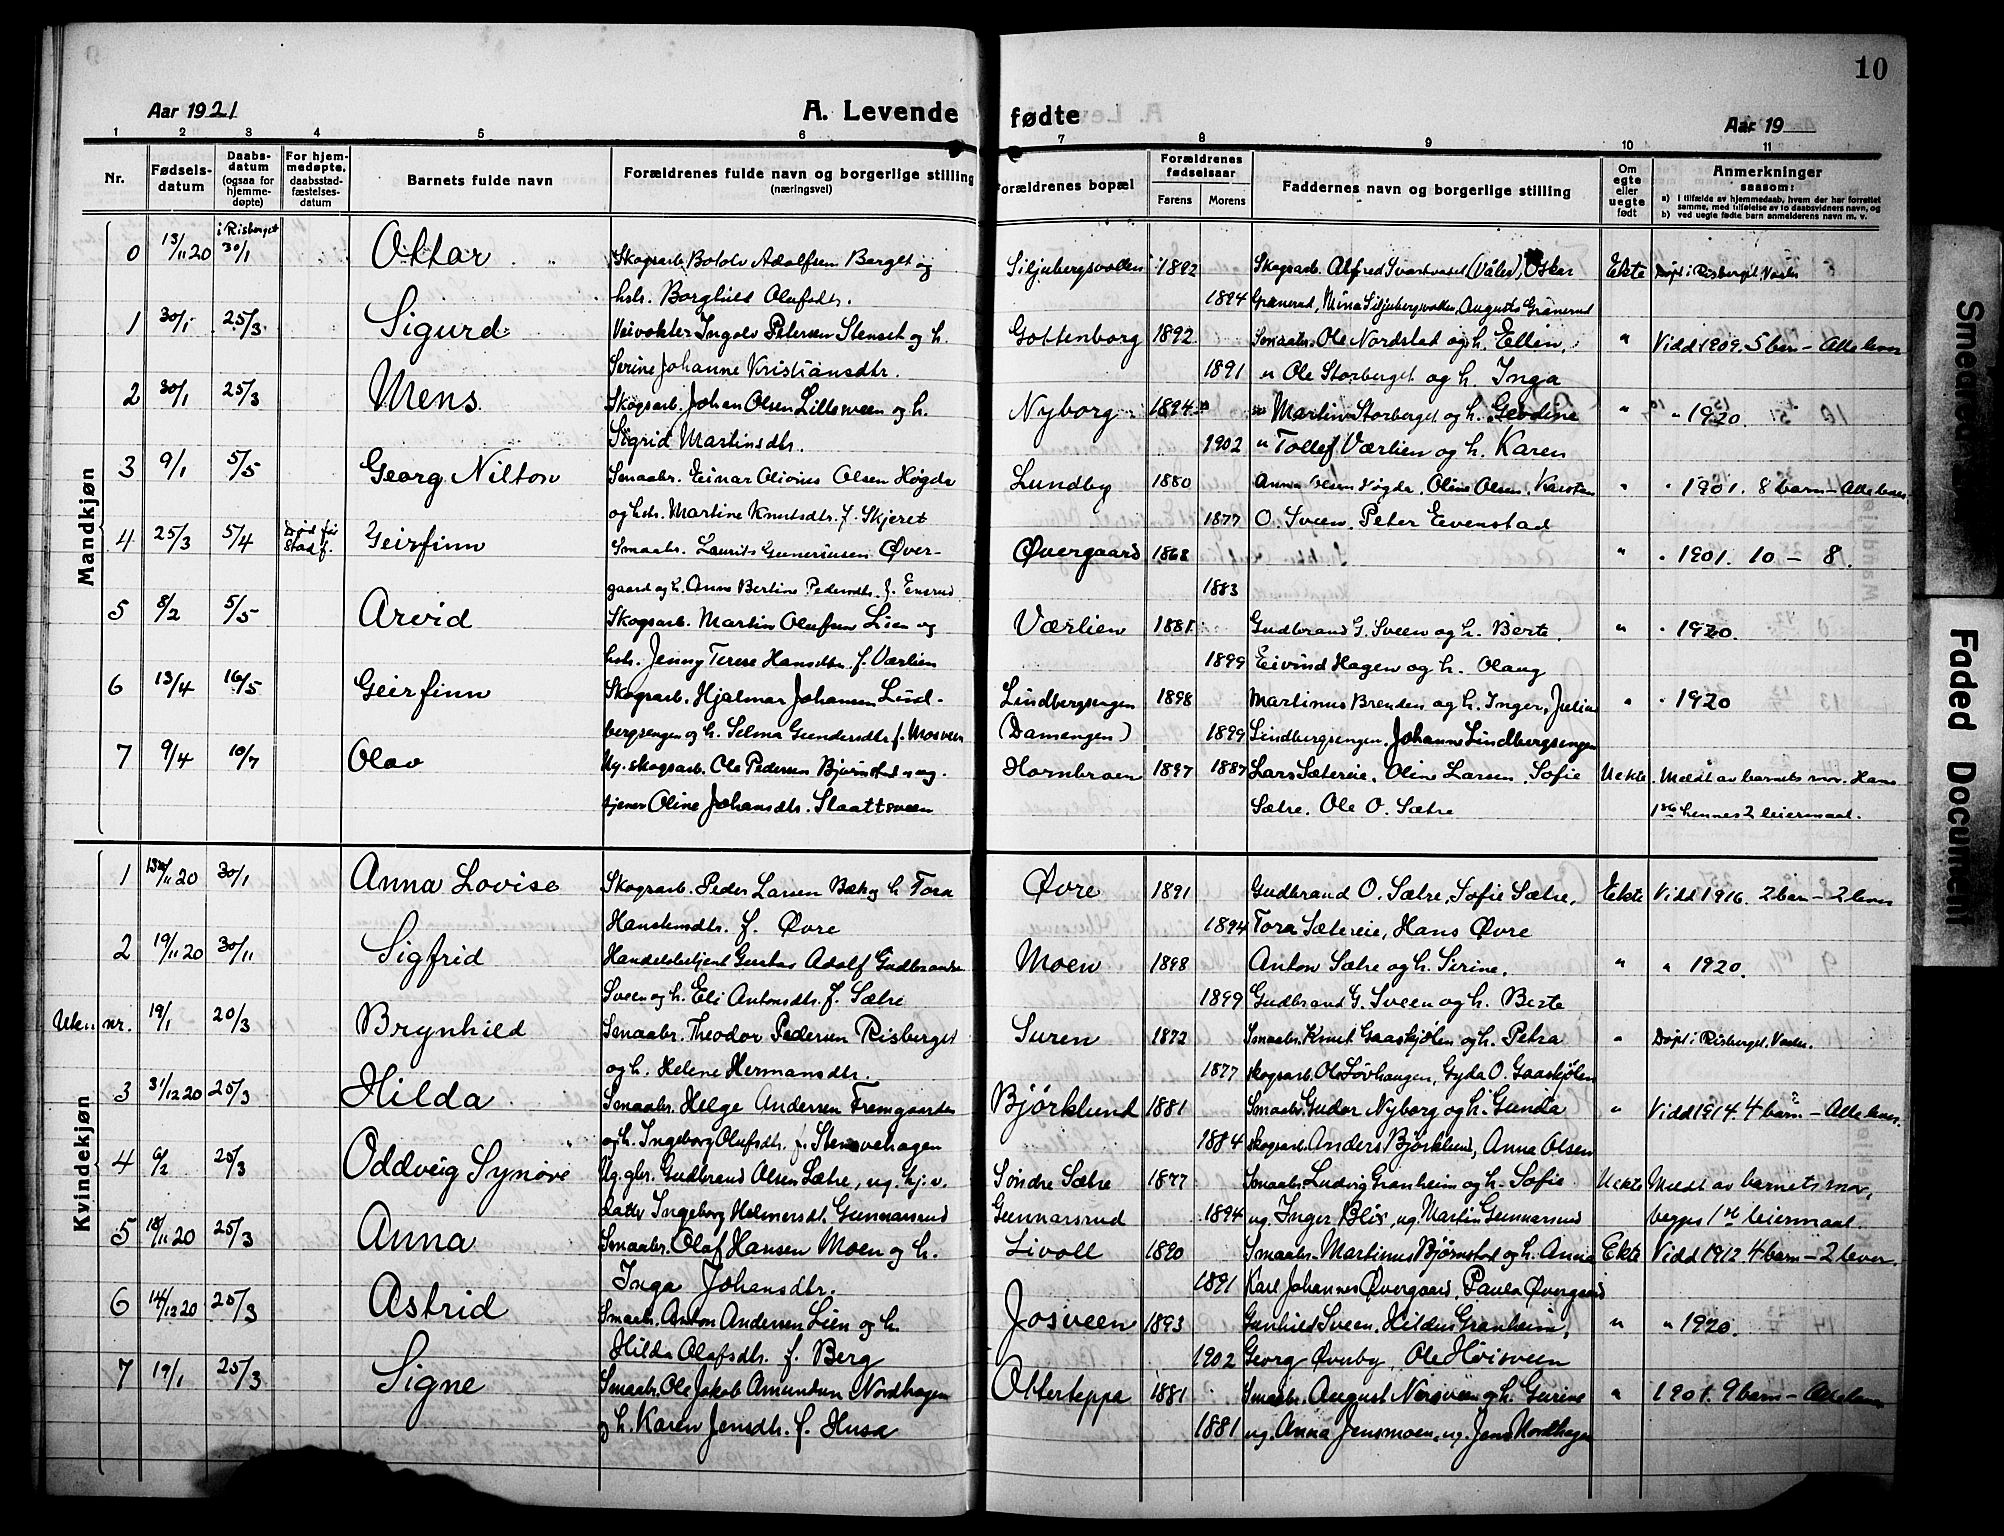 10
Aar 1921
A. Levende fødte
Aar 19
1 2 3 4 5 6 7 8 9 10 11
Nr.
Fødsels-
datum
Daabs-
datum
(ogsaa for
hjemme-
døpte)
For hjem-
medøpte,
daabsstad-
fæstelses-
datum
Barnets fulde navn
Forældrenes fulde navn og borgerlige stilling
(næringsvei)
Forældrenes bopæl
Forældrenes
fødselsaar
Farens Morens
Faddernes navn og borgerlige stilling
Om
egte
eller
uegte
født
Anmerkninger
saasom:
a) I tilfælde av hjemmedaab, hvem der har forrettet
samme, med tilføielse av to daabsvidners navn, og
b) ved uegte fødte barn anmelderens navn m. v.
Mandkjøn
0 13/11 20 i Risberget 30/1 Oktar Skogsarb. Botolv Adolfsen Berget og Siljubergsvollen 1892 Skogsarb. Alfred Svartvasel (Våler), Oskar Ekte Døpt i Risberget, Vaaler
hstr. Borghild Olufsdtr. 1894 Granerud, Mina Siljubergsvollen, Augusta Granerud
1 30/1 25/3 Sigurd Veivokter Ingolv Petersen Stenset og h. Gottenborg 1892 Smaabr. Ole Nordstad og h. Ellen, " Vidd 1909. 5 barn – Alle lever
Serine Johanne Kristiansdtr. 1891 " Ole Storberget og h. Inga
2 30/1 25/3 Mens Skogsarb. Johan Olsen Lillesveen og h. Nyborg 1894 " Martin Storberget og h. Geodine " " 1920.
Sigrid Martinsdtr. 1902 " Tollef Værlien og h. Karen
3 9/1 5/5 Georg Nilton Smaabr. Einar Olivius Olsen Høgda Lundby 1880 Anna Olsen Høgda, Oline Olsen, Karsten " " 1901. 8 barn – Alle lever
og hstr. Martine Knutsdtr. f. Skjeret 1877 O. Sveen, Peter Evenstad
4 25/3 5/4 Død før stadf. Geirfinn Smaabr. Laurits Gunerius­en Øver- Øvergaard 1868 " " 1901. 10 – 8.
gaard og h. Anne Bertine Pedersdtr. f. Ensrud 1883
5 8/2 5/5 Arvid Skogsarb. Martin Olufsen Lien og Værlien 1881 Gudbrand G. Sveen og h. Berte, " " 1920.
hstr. Jenny Terese Hansdtr. f. Værlien 1899 Eivind Hagen og h. Olaug
6 13/4 16/5 Geirfinn Skogsarb. Hjalmar Johansen Lind- Lindbergsengen 1898 Martinus Brenden og h. Inger, Julius " " 1920
bergsengen og h. Selma Gundersdtr. f. Mosveen (Damengen) 1899 Lindbergsengen, Johanne Lindbergsengen
7 9/4 10/7 Olav Ug. skogsarb. Ole Pedersen Bjørnstad og ug. Hornbroen 1897 1887 Lars Sætereie, Oline Larsen, Sofie Uekte Meldt av barnets mor. Hans
tjener Oline Johansdtr. Slaattsveen Sætre, Ole O. Sætre 1ste hennes 2 leiermaal.
Kvindekjøn
1 13/11 20 30/1 Anna Lovise Skogsarb. Peder Larsen Bæk og h. Tora Øvre 1891 Gudbrand O. Sætre, Sofie Sætre, Ekte Vidd 1916. 2 barn – 2 lever
Hansensdtr. f. Øvre 1894 Tora Sætereie, Hans Øvre
2 19/11 20 30/11 Sigfrid Handelsbetjent Gustav Adolf Gudbrandsen Moen 1898 Anton Sætre og h. Serine, " " 1920.
Sveen og h. Eli Antonsdtr. f. Sætre 1899 Gudbrand G. Sveen og h. Berte
Uten nr. 19/1 20/3 Brynhild Smaabr. Theodor Pedersen Risberget Suren 1872 Smaabr. Knut Gaaskjølen og h. Petra " Døpt i Risberget, Vaaler.
og h. Helene Hermansdtr. 1877 skogsarb. Ole Løvhaugen, Gyda O. Gaaskjølen
3 31/12 20 25/3 Hilda Smaabr. Helge Andersen Fremgaarden Bjørklund 1881 Smaabr. Gudor Nyborg og h. Gunda " Vidd 1914. 4 barn – Alle lever.
og h. Ingeborg Olufsdtr. f. Stensvehagen 1884 skogsarb. Anders Bjørklund, Anna Olsen
4 6/2 25/3 Oddveig Synøve Ug. gbr. Gudbrand Olsen Sætre, ug. hj.v. Søndre Sætre 1877 Smaabr. Ludvig Granheim og h. Sofie Uekte Meldt av barnets mor,
datter Ingeborg Helmersdt. Gunnarsrud Gunnarsrud 1894 ug. Inger Blix, ug. Martin Gunnarsrud begges 1ste leiermaal.
5 18/11 20 25/3 Anna Smaabr. Olaf Hansen Moen og h. Livoll 1890 Smaabr. Martinus Bjørnstad og h. Anna Ekte Vidd 1912. 4 barn – 2 lever.
Inga Johansdtr. 1891 Karl Johannes Øvergaard, Paula Øvergaard
6 14/12 20 25/3 Astrid Smaabr. Anton Andersen Lien og h. Josveen 1893 Gunhild Sveen, Hildur Granheim, " " 1920.
Hilda Olafsdtr. f. Berg 1902 Georg Øvreby, Ole Høisveen
7 19/1 25/3 Signe Smaabr. Ole Jakob Amundsen Nordhagen Otterteppa 1881 Smaabr. August Nersveen og h. Gurine " 1901. 9 barn – Alle lever
og h. Karen Jensdtr. f. Husa 1881 ug. Anna Jensmoen, ug. Jens Nordhagen
Faded Document